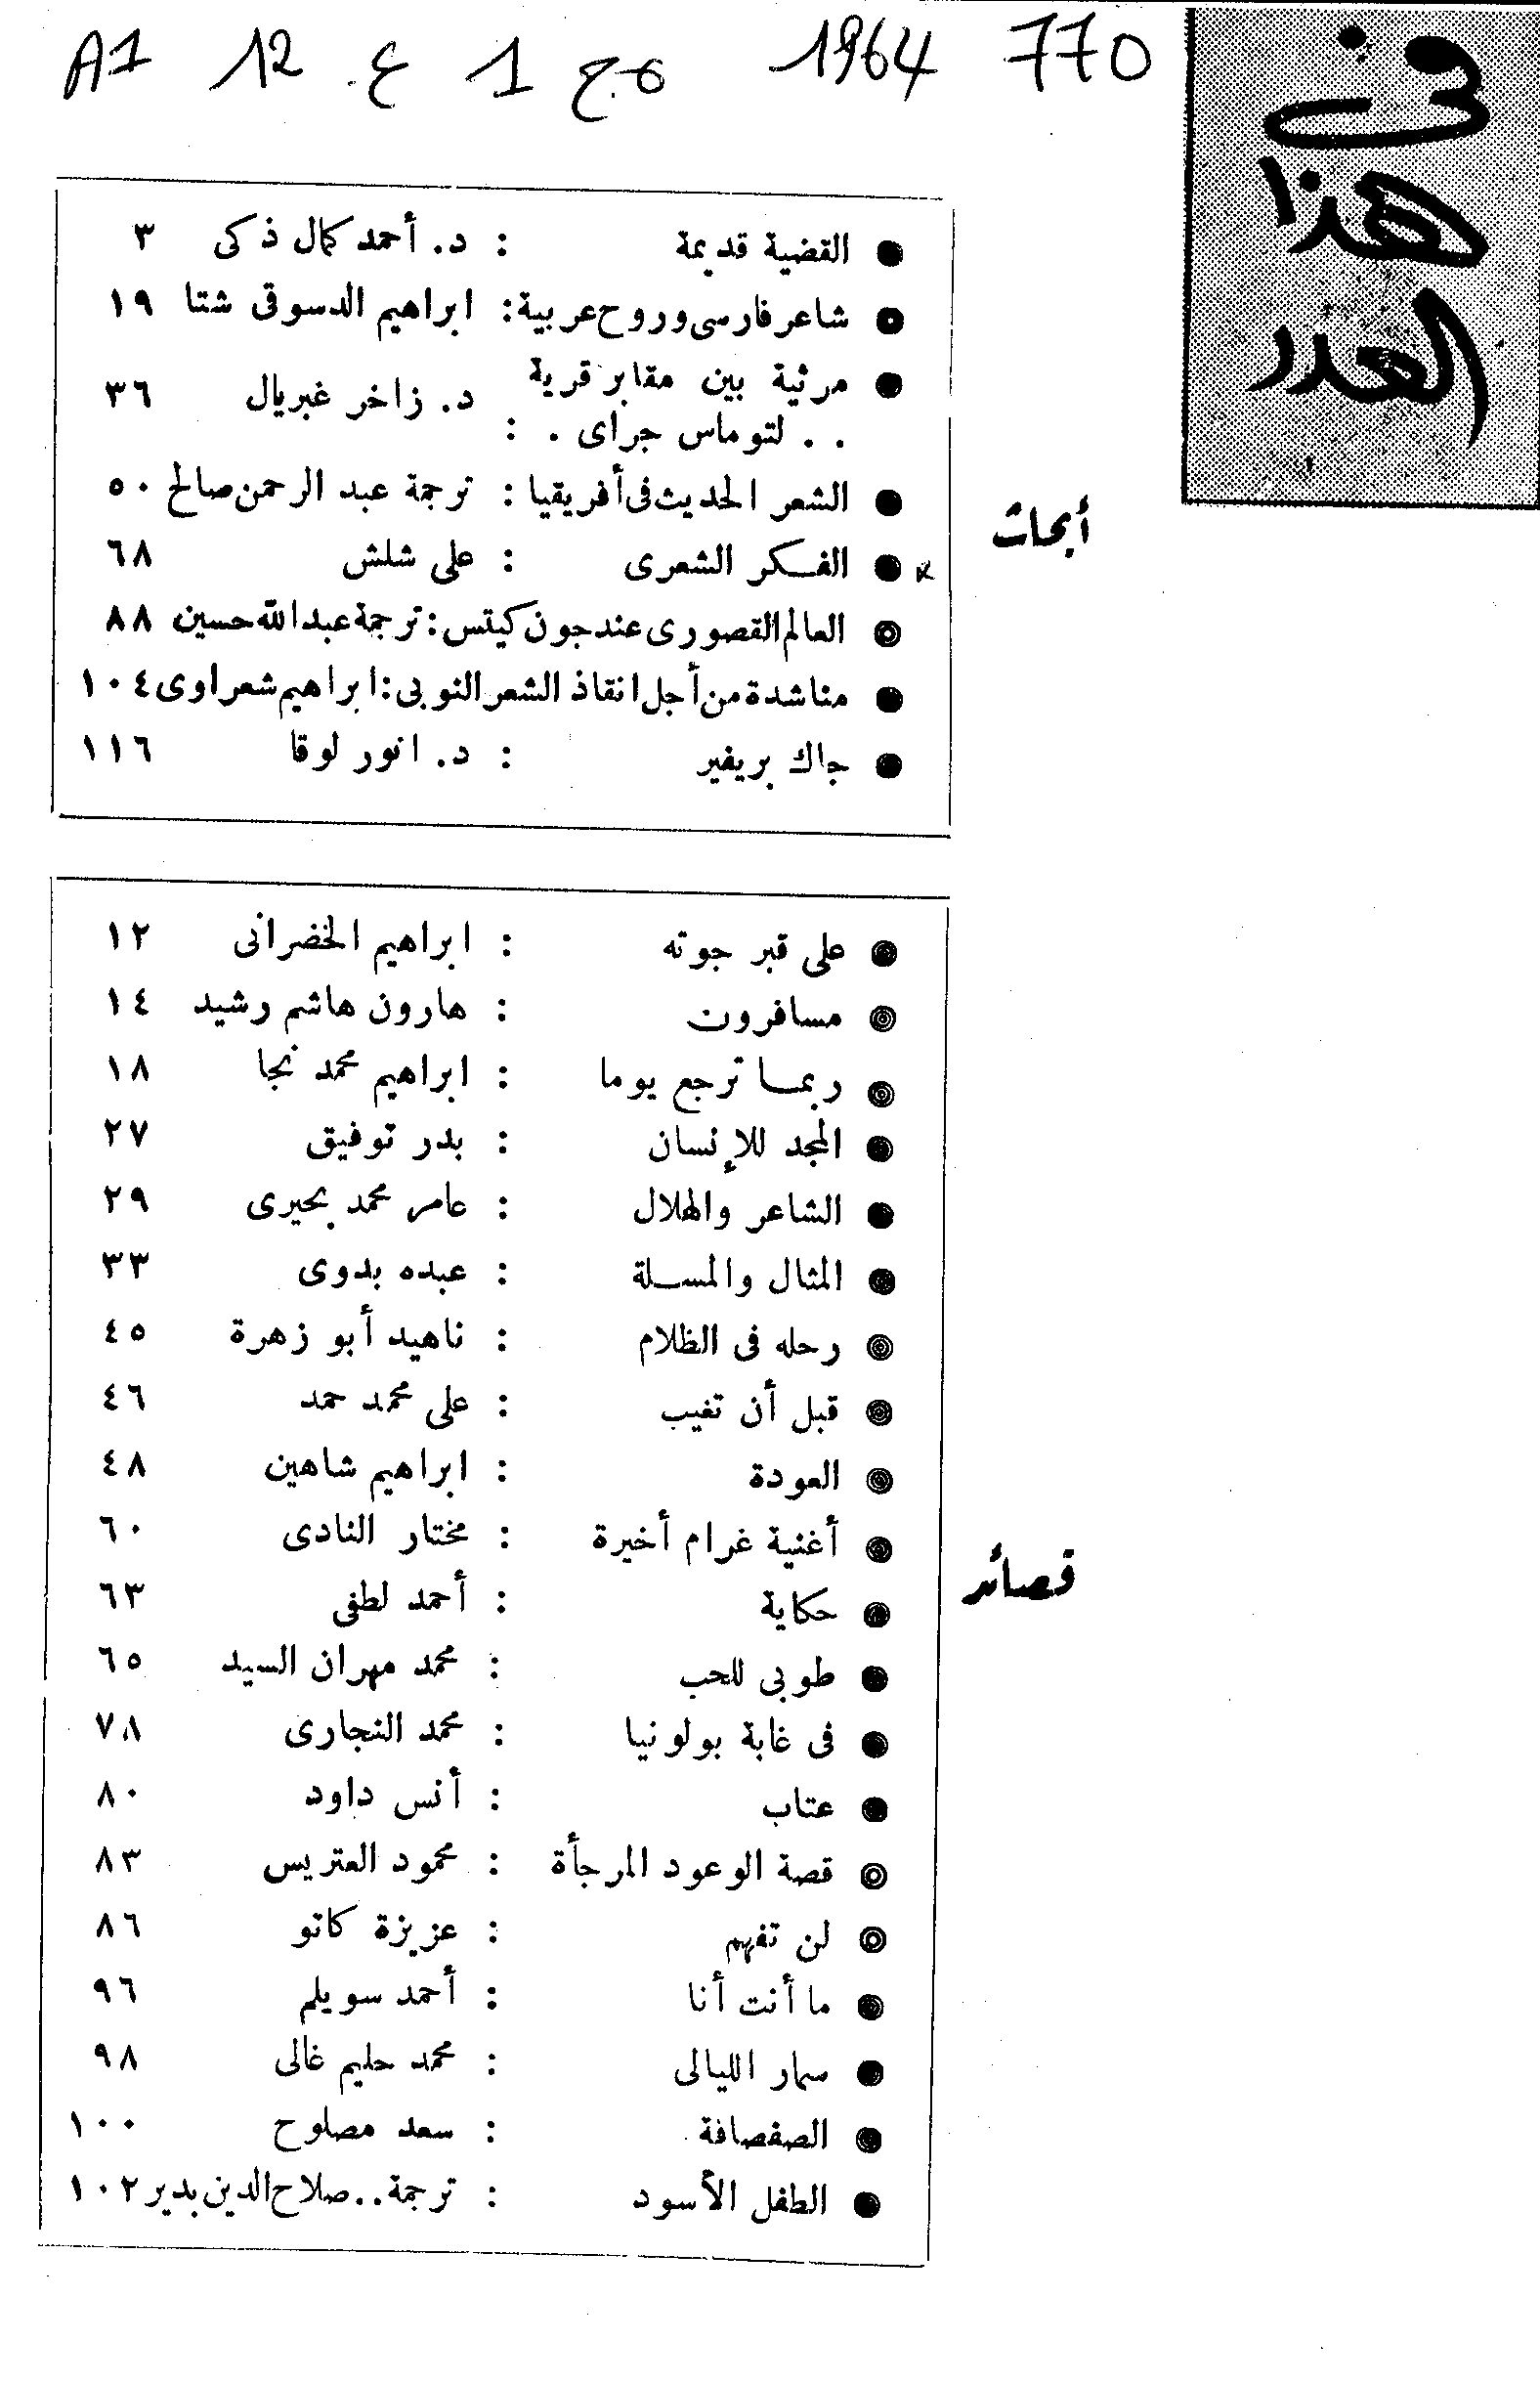 770 1964 مج 1 ع. 12 A1
فى
هذا
العدد
أبحاث
● القضية قديمة : د. أحمد كمال ذكى ٣
● شاعر فارسى وروح عربية : ابراهيم الدسوقى شتا ١٩
● مرثية بين مقابر قرية
. . لتوماس جراى . : د. زاخر غبريال ٣٦
● الشعر الحديث فى أفريقيا : ترجمة عبد الرحمن صالح ٥٠
● الفكر الشعرى : على شلش ٦٨
● العالم القصورى عند جون كيتس : ترجمة عبد الله حسين ٨٨
● مناشدة من أجل انقاذ الشعر النوبى : ابراهيم شعراوى ١٠٤
● جاك بريفير : د. انور لوقا ١١٦
قصائد
● على قبر جوته : ابراهيم الخضرانى ١٢
● مسافرون : هارون هاشم رشيد ١٤
● ربما ترجع يوما : ابراهيم محمد نجا ١٨
● المجد للإنسان : بدر توفيق ٢٧
● الشاعر والهلال : عامر محمد بحيرى ٢٩
● المثال والمسلة : عبده بدوى ٣٣
● رحله فى الظلام : ناهيد أبو زهرة ٤٥
● قبل أن تغيب : على محمد حمد ٤٦
● العودة : ابراهيم شاهين ٤٨
● أغنية غرام أخيرة : مختار النادى ٦٠
● حكاية : أحمد لطفى ٦٣
● طوبى للحب : محمد مهران السيد ٦٥
● فى غابة بولونيا : محمد النجارى ٧٨
● عتاب : أنس داود ٨٠
● قصة الوعود المرجأة : محمود العتريس ٨٣
● لن تفهم : عزيزة كاتو ٨٦
● ما أنت أنا : أحمد سويلم ٩٦
● سمار الليالى : محمد حليم غالى ٩٨
● الصفصافة : سعد مصلوح ١٠٠
● الطفل الأسود : ترجمة . . صلاح الدين بدير ١٠٢